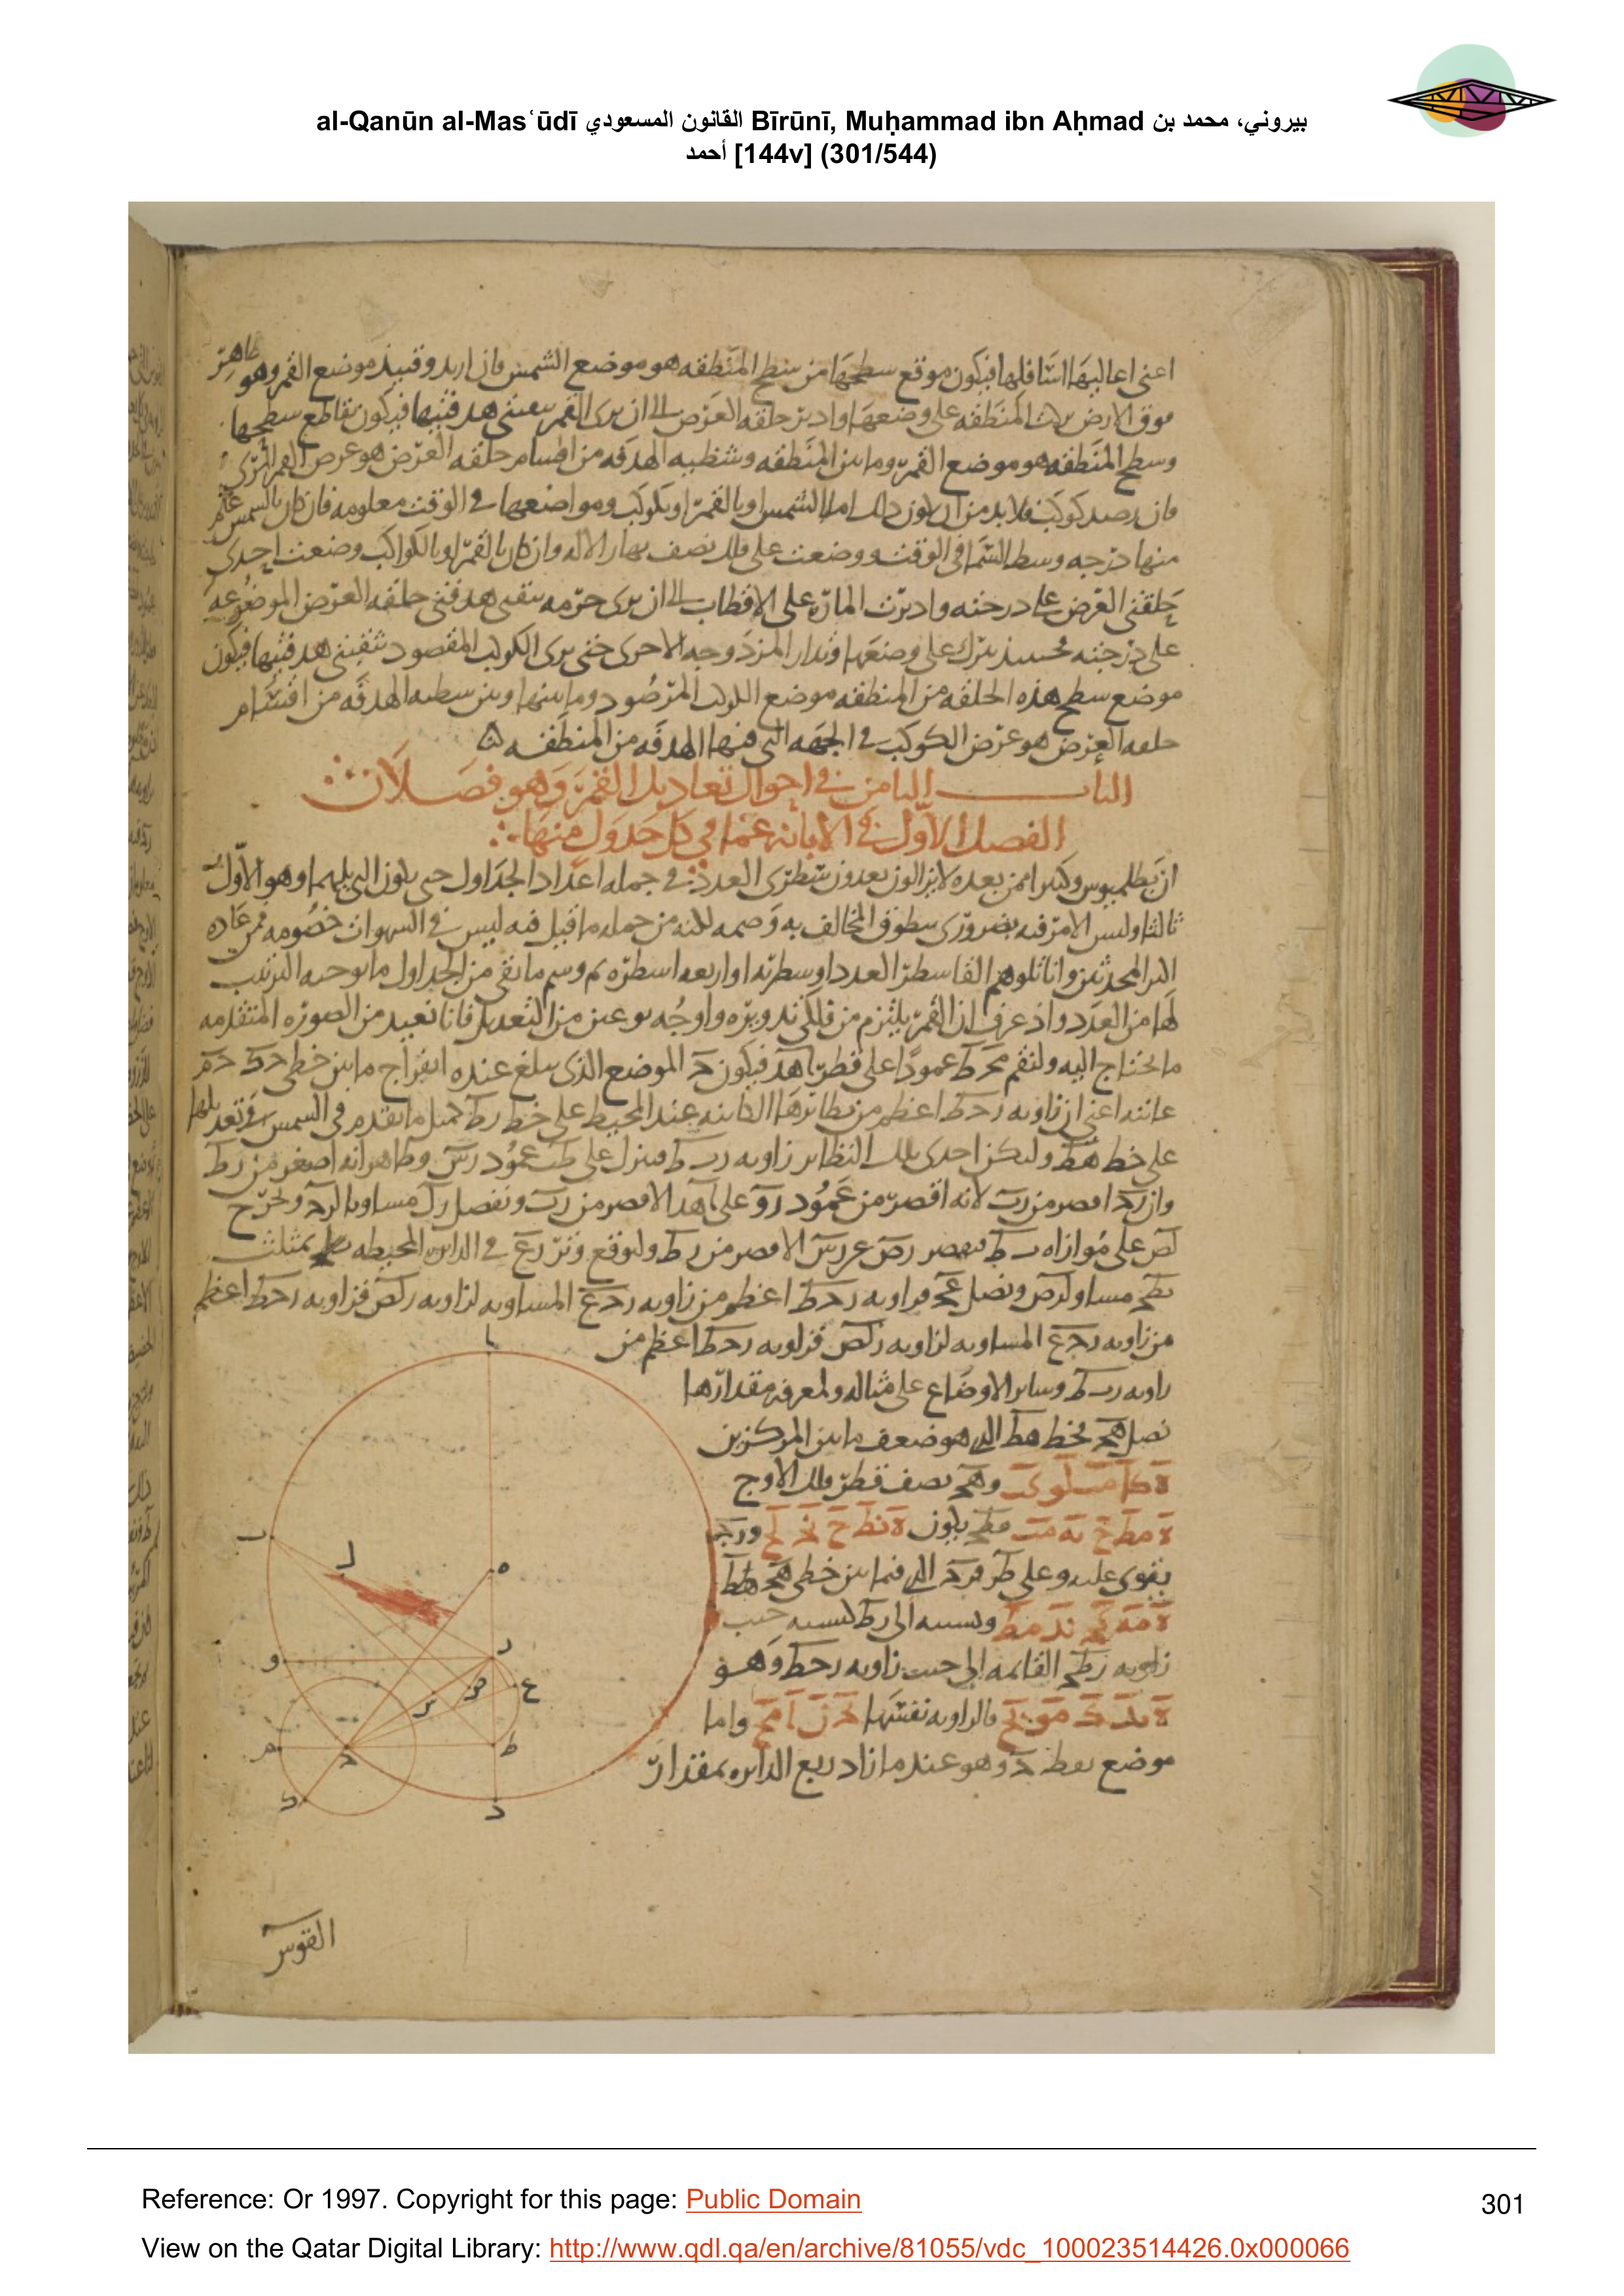 al-Qanūn al-Masʿūdī القانون المسعودي Bīrūnī, Muḥammad ibn Aḥmad بيروني، محمد بن
أحمد [144v] (301/544)
اعنى اعاليها اسافلها فيكون موقع سطحها من سطح المنطقه هو موضع الشمس فان اريد وقتيذ موضع القمر وهو ظاهر
فوق الارض المنطقه على وضعها وادير حلقه العرض الى ان يرى القمر بثقبتى هدفتيها فيكون تقاطع سطحها
وسطح المنطقه هو موضع القمر وما بين المنطقه وشظيه الهدفه من اقسام حلقه العرض هو عرض القمر المرى
فان رصد كوكب فلا بد من ان يكون ذلك اما بالشمس او بالقمر او بكوكب ومواضعها فى الوقت معلومه فان كان بالشمس علم
منها درجه وسط السما فى الوقت ووضعت على فلك نصف نهار الاله وان كان بالقمر او بالكواكب وضعت احدى
حلقتى العرض على درجته واديرت الماره على الاقطاب الى ان يرى جرمه بثقبتى هدفتى حلقه العرض الموضوعه
على درجته فحينيذ يترك على وضعها وتدار المزدوجه الاخرى حتى يرى الكوكب المقصود بثقبتى هدفتيها فيكون
موضع سطح هذه الحلقه من المنطقه موضع الكوكب المرصود وما بينها وبين شظيه الهدفه من اقسام
حلقه العرض هو عرض الكوكب فى الجهه التى فيها الهدفه من المنطقه
الباب الثامن فى احوال تعاديل القمر وهو فصلان
الفصل الاول فى الابانه عما فى كل جدول منها
ان بطلميوس وكثيرا ممن بعده لا يزالون يعدون سطرى العدد فى جمله اعداد الجداول حتى يكون الذى يليهما وهو الاول
ثالثا وليس الامر فيه بضرورى المخالف به وصمه لكنه من جمله ما قيل فيه ليس فى الشهوات خصومه فمن عاده
اكثر المحدثين وانا تلوهم القا سطر العدد او سطريه او اربعه اسطره ثم وسم ما بقى من الجداول ما يوجبه الترتيب
لها من العدد واذ عرف ان القمر يلتزم من فلكى تدويره واوجه نوعين من التعديل فانا نعيد من الصوره المتقدمه
ما يحتاج اليه ولنقم محـ ط عمودا على قطر اهد فيكون حـ الموضع الذى يبلغ عنده انفراج ما بين خطى حك حم
غايته اعنى ان زاويه رحط اعظم من نظائرها الكائنه عند المحيط على خط رط بمثل ما تقدم فى الشمس
على خط هط وليكن احدى تلك النظاير زاويه ر ب ط فننزل على ط ب عمود رس وظاهر انه اصغر من رط
وان رحـ اقصر من رب لانه اقصر من عمود رو على اهد الاقصر من رب ونفصل رل مساويا لرحـ ونخرج
لص على موازاه ب ط فيقصر رص عن رس الاقصر من رط وليوقع وتر رع فى الدايره المحيطه بمثلث
رطحـ مساو لرص ونصل عحـ فزاويه رحط اعظم من زاويه رحع المساويه لزاويه رلص فزاويه رحط اعظم
من زاويه رحع المساويه لزاويه رلص فزاويه رحط اعظم من
زاويه ر ب ط وساير الاوضاع على مثاله ولمعرفه مقدارها
نصل هحـ فخط هط الذى هو ضعف ما بين المركزين
وهحـ نصف قطر فلك الاوج
فطحـ يكون ورحـ
يقوى عليه وعلى طر فرحـ الذى فيما بين خطى هحـ هط
ونسبته الى رط كنسبه جيب
زاويه رطحـ القائمه الى جيب زاويه رحط وهو
فالزاويه نفسها واما
موضع نقطه حـ وهو عند ما زاد ربع الدايره بمقدار
ا
ب
ل
ه
و
ر
س
ص
ع
م
حـ
ط
ك
د
القوس
Reference: Or 1997. Copyright for this page: Public Domain
301
View on the Qatar Digital Library: http://www.qdl.qa/en/archive/81055/vdc_100023514426.0x000066